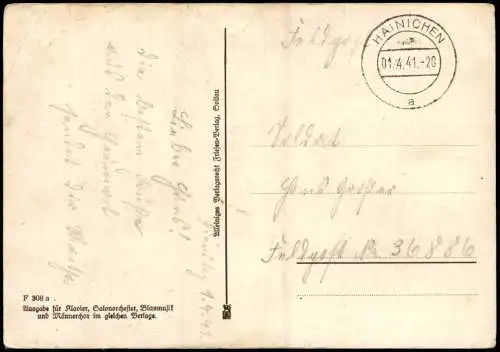 Feldpost
HAINICHEN
01.4.41.-20
a
Soldat
Hans Großer
Feldpost Nr 36886
Lieber Hans!
Die besten Grüße
aus der Heimat
sendet Dir
1.4.41.
Alleiniges Verlagsrecht Frieher-Verlag, Soltau
F 308 a
Ausgabe für Klavier, Salonorchester, Blasmusik
und Männerchor im gleichen Verlage.